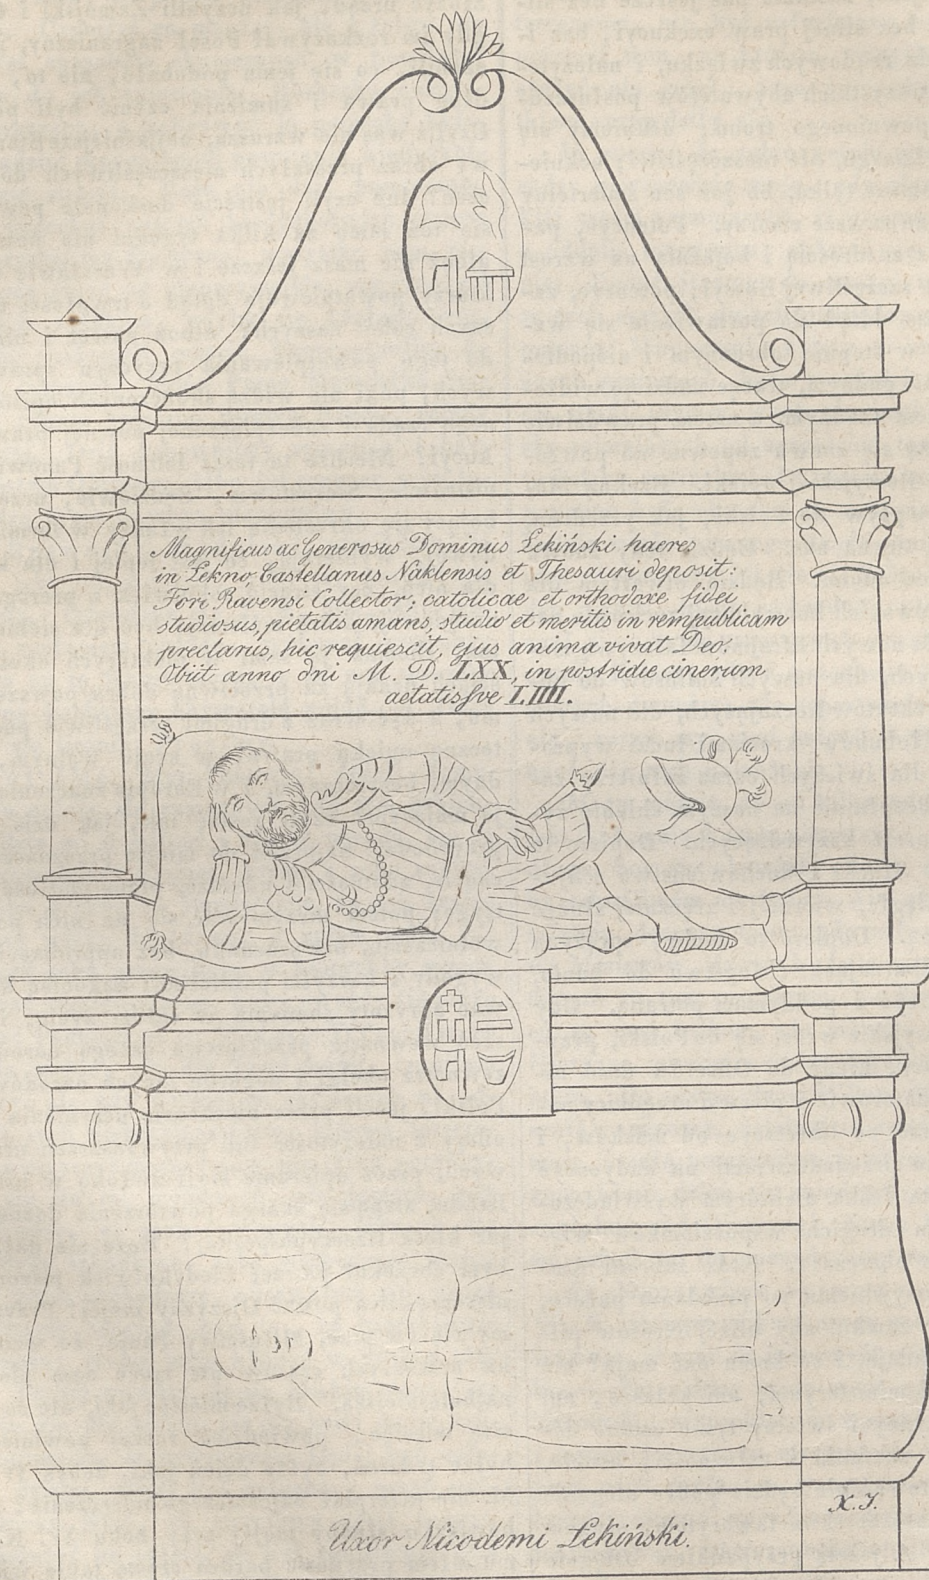 Magnificus ac Generosus Dominus Łekiński haeres
in Łekno, Castellanus Naklensis et Thesauri deposit:
Fori Ravensi Collector; catolicae et orthodoxe fidei
studiosus, pietatis amans, studio et meritis in rempublicam
preclarus, hic requiescit, ejus anima vivat Deo.
Obiit anno dni M. D. LXX, in postridie cinerum
aetatis sve LIIII.
X. J.
Uxor Nicodemi Łekiński.